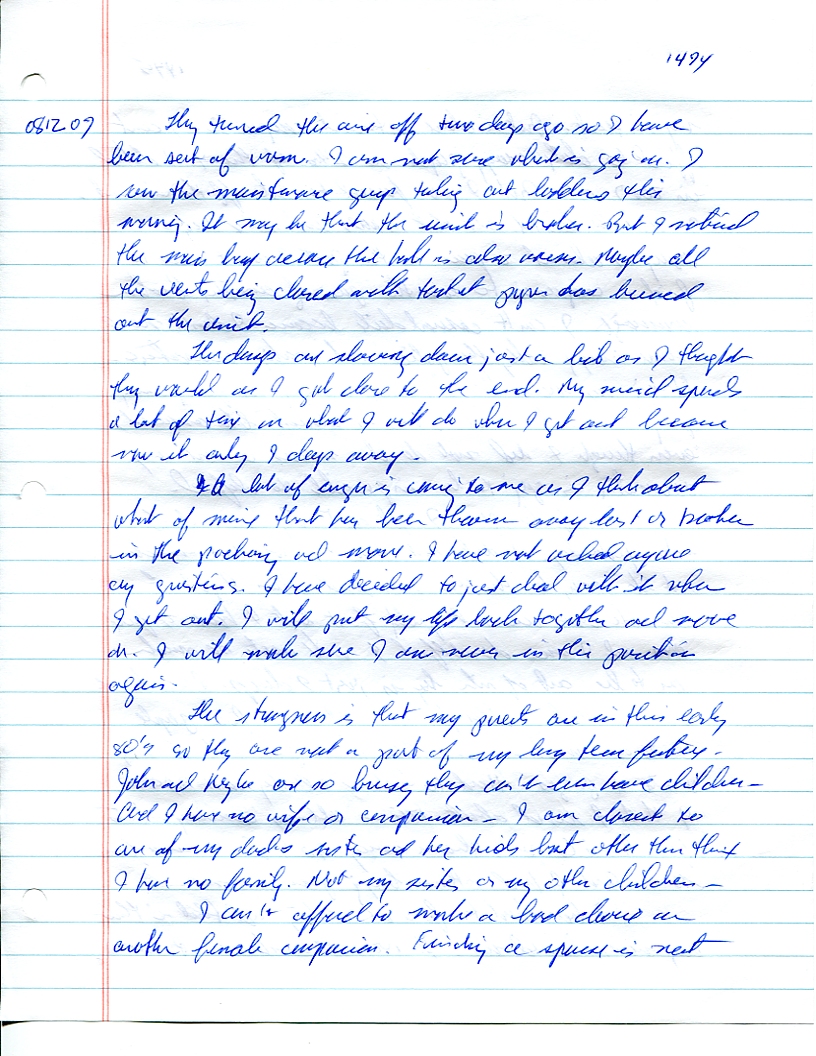 1494
081209 They turned the air off two days ago so I have
been sort of warm. I am not sure what is going on. I
saw the maintenance guys taking out ladders this
morning. It may be that the unit is broken. But I noticed
the main bay across the hall is also warm. Maybe all
the vents being closed with toilet paper has burned
out the unit.
The days are slowing down just a bit as I thought
they would as I get close to the end. My mind spends
a lot of time on what I will do when I get out because
now it only 9 days away.
A lot of anger is coming to me as I think about
what of mine that has been thrown away lost or broken
in the packing and move. I have not asked anyone
any questions. I have decided to just deal with it when
I get out. I will put my life back together and move
on. I will make sure I am never in this position
again.
The strangeness is that my parents are in their early
80's so they are not a part of my long term future.
John and are so busy they can't even have children -
And I have no wife or companion - I am closest to
one of my dads sister and her kids but other than that
I have no family. Not my sister or my other children -
I can't afford to make a bad choice on
another female companion. Finding a spouse is next